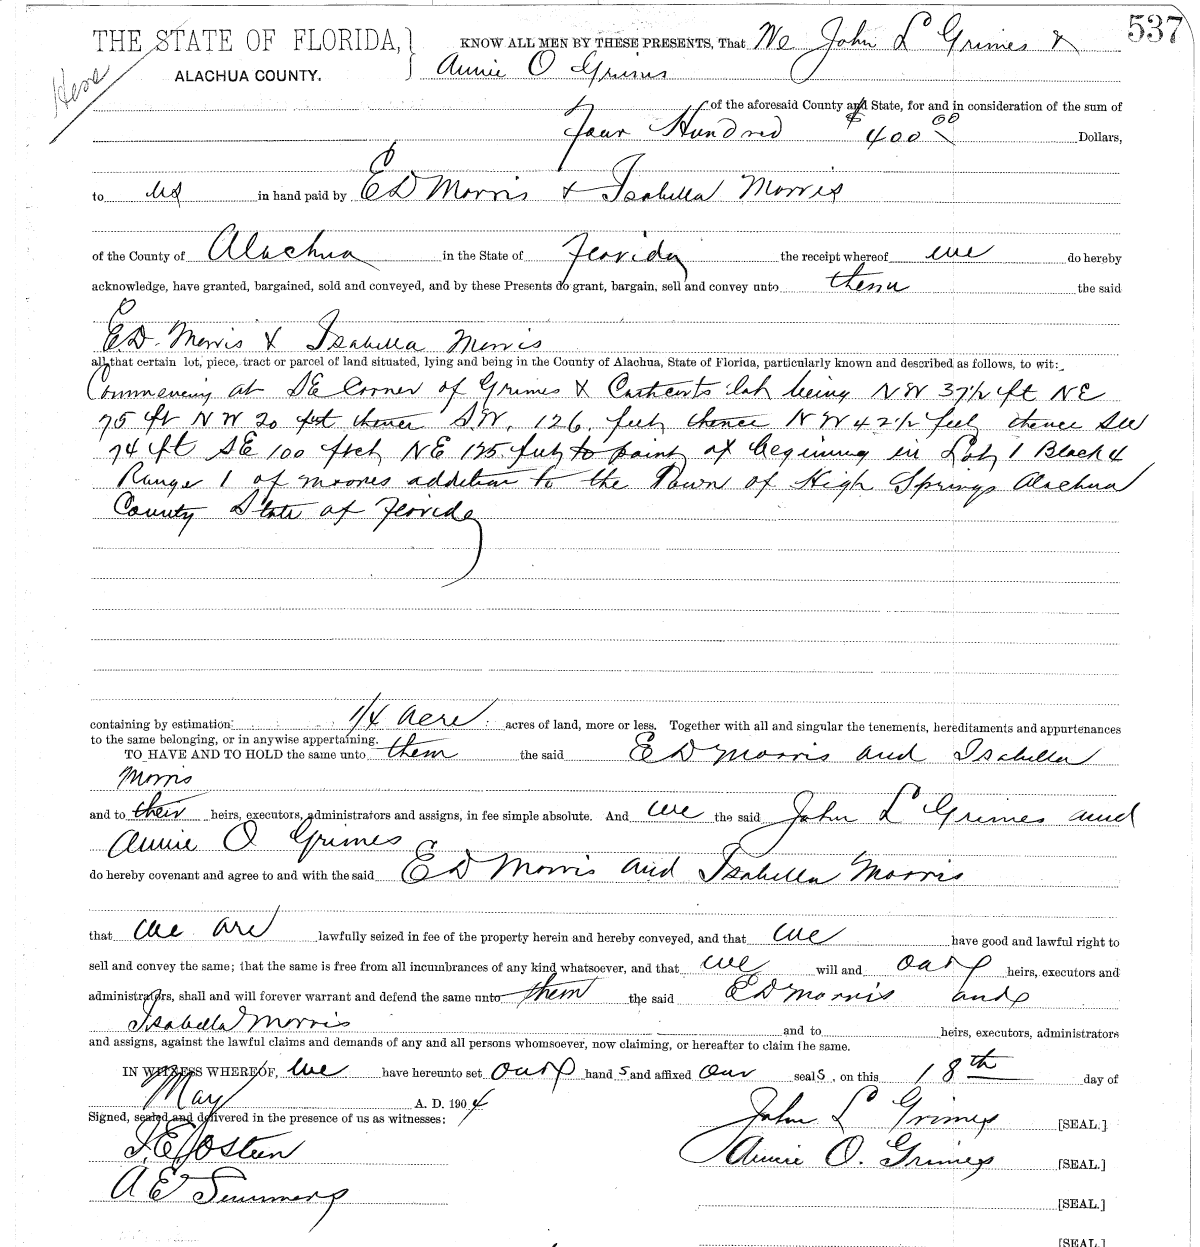 537
THE STATE OF FLORIDA, KNOW ALL MEN BY THESE PRESENTS, That We John L Grimes &
ALACHUA COUNTY. Annie O Grimes
of the aforesaid County and State, for and in consideration of the sum of
Four Hundred $400 00 Dollars,
to us in hand paid by E D Morris & Isabella Morris
of the County of Alachua in the State of Florida the receipt whereof we do hereby
acknowledge, have granted, bargained, sold and conveyed, and by these Presents do grant, bargain, sell and convey unto them the said
E.D. Morris & Isabella Morris
all that certain lot, piece, tract or parcel of land situated, lying and being in the County of Alachua, State of Florida, particularly known and described as follows, to wit:
Commencing at SE Corner of Grimes & being N W 37½ ft NE
75 ft N W 20 feet thence S.W. 126. feet thence N W 42½ feet thence SW
74 ft SE 100 feet NE 125 feet to point of begining in Lot 1 Block 4
Range 1 of Moores addition to the Town of High Springs Alachua
County State of Florida
containing by estimation 1/4 acre acres of land, more or less. Together with all and singular the tenements, hereditaments and appurtenances
to the same belonging, or in anywise appertaining.
TO HAVE AND TO HOLD the same unto them the said E D Morris and Isabella
Morris
and to their heirs, executors, administrators and assigns, in fee simple absolute. And we the said John L Grimes and
Annie O Grimes
do hereby covenant and agree to and with the said E D Morris and Isabella Morris
that we are lawfully seized in fee of the property herein and hereby conveyed, and that we have good and lawful right to
sell and convey the same; that the same is free from all incumbrances of any kind whatsoever, and that we will and our heirs, executors and
administrators, shall and will forever warrant and defend the same unto them the said E D Morris and
Isabella Morris and to heirs, executors, administrators
and assigns, against the lawful claims and demands of any and all persons whomsoever, now claiming, or hereafter to claim the same.
IN WITNESS WHEREOF, we have hereunto set our hand s and affixed our seal s, on this 18th day of
May A. D. 1904
Signed, sealed and delivered in the presence of us as witnesses:
John L Grimes [SEAL.]
J.E. Osteen
Annie O. Grimes [SEAL.]
A E Summers
[SEAL.]
[SEAL.]